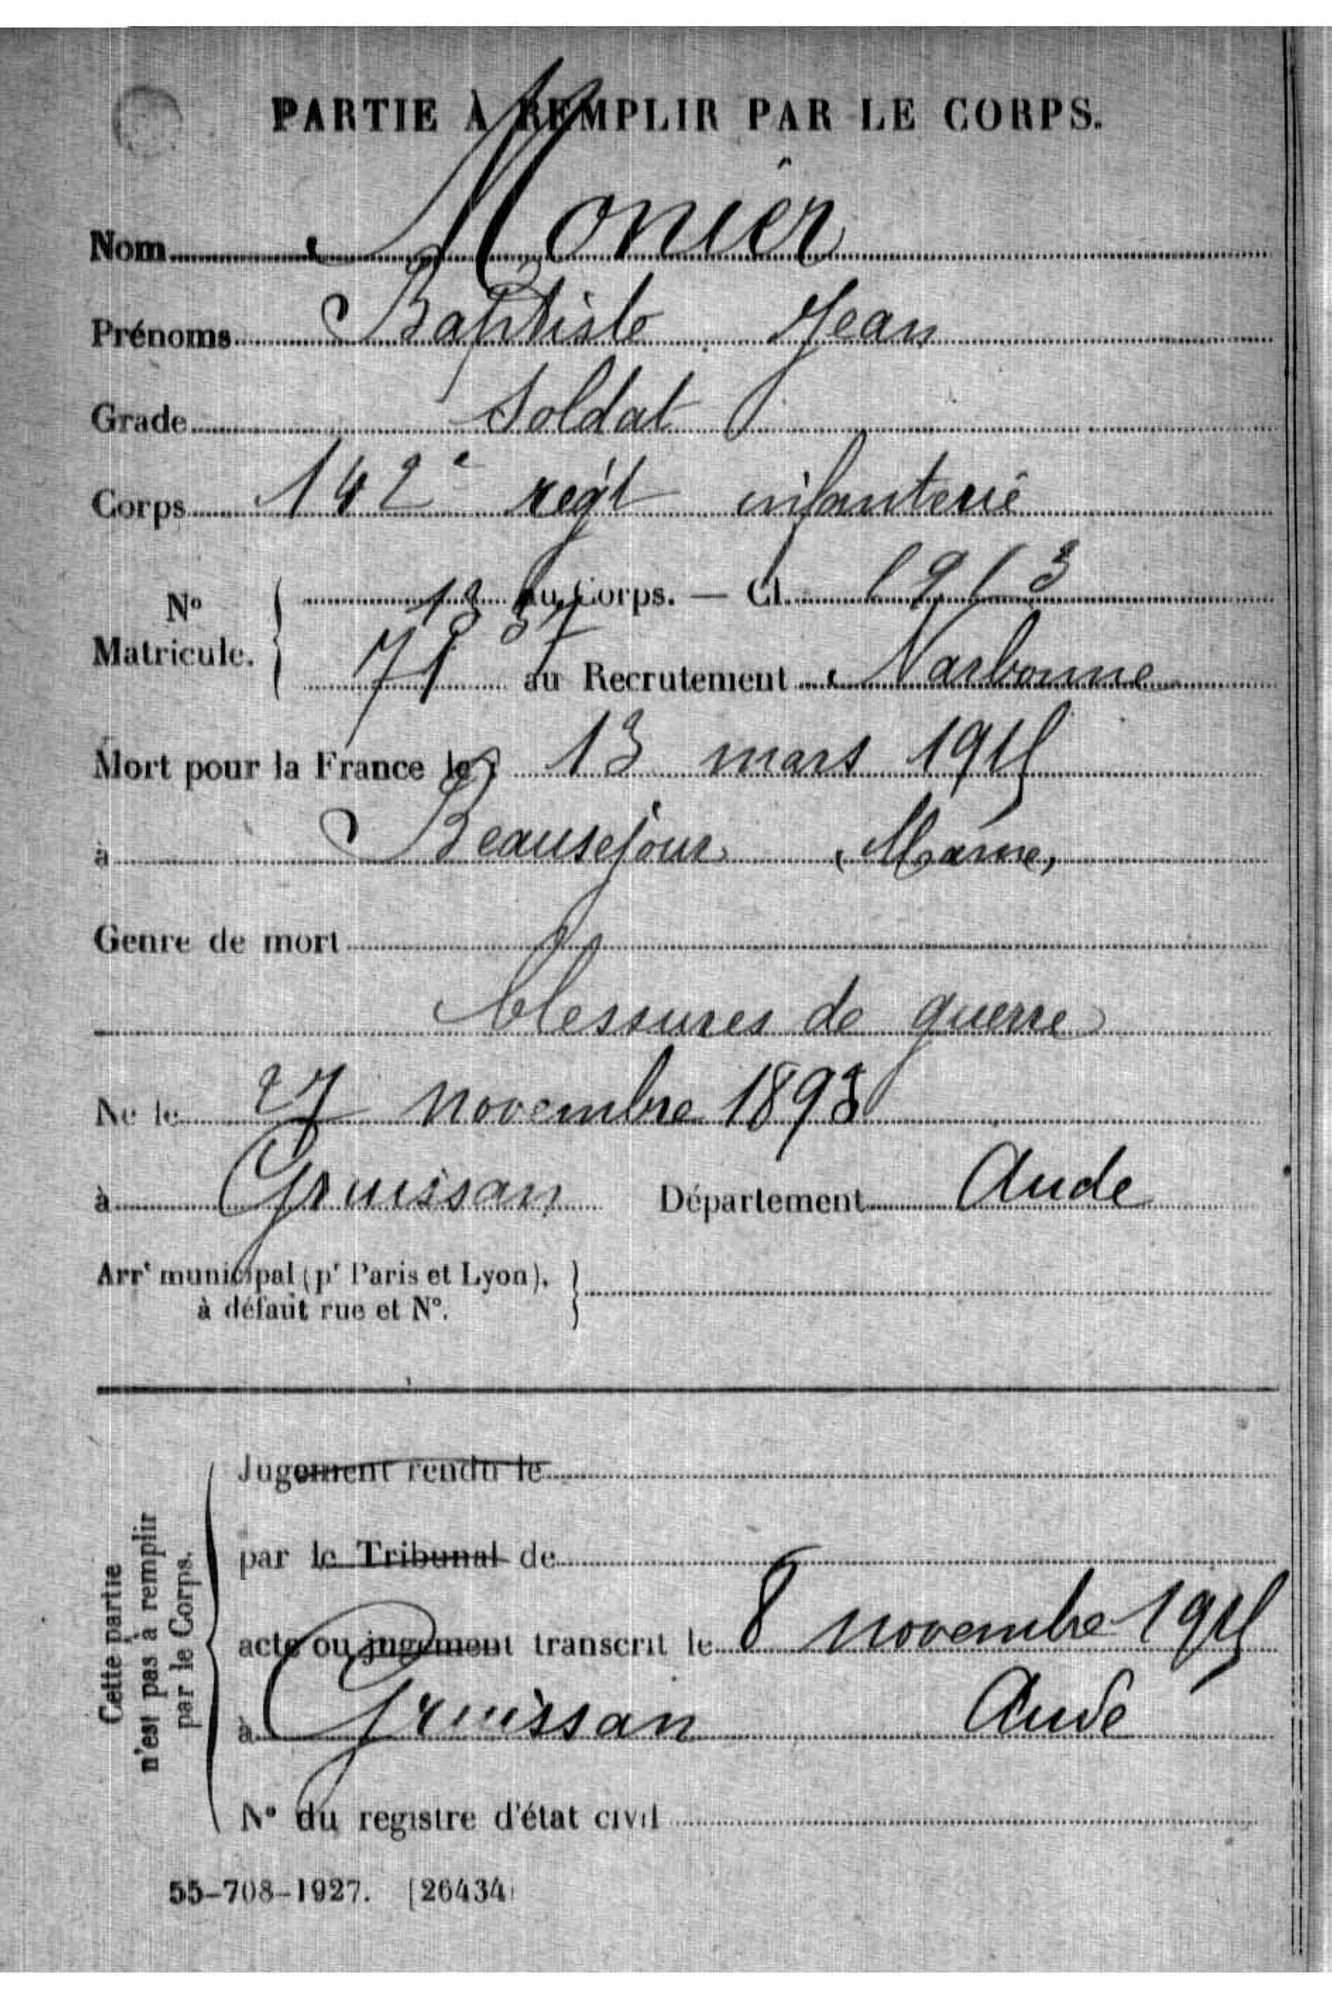 PARTIE À REMPLIR PAR LE CORPS.
Nom Monier
Prénoms Baptiste Jean
Grade Soldat
Corps 142e regt infanterie
No Matricule. au Corps. — Cl. 1913
71 au Recrutement Narbonne
Mort pour la France le 13 mars 1915
à Beausejour (Marne)
Genre de mort
blessures de guerre
Né le 27 novembre 1893
à Gruissan Département Aude
Arrt municipal (pr Paris et Lyon),
à défaut rue et No.
Cette partie
n'est pas à remplir
par le Corps.
Jugement rendu le
par le Tribunal de
acte ou jugement transcrit le 8 novembre 1915
à Gruissan Aude
No du registre d'état civil
55-708-1927. [26434]